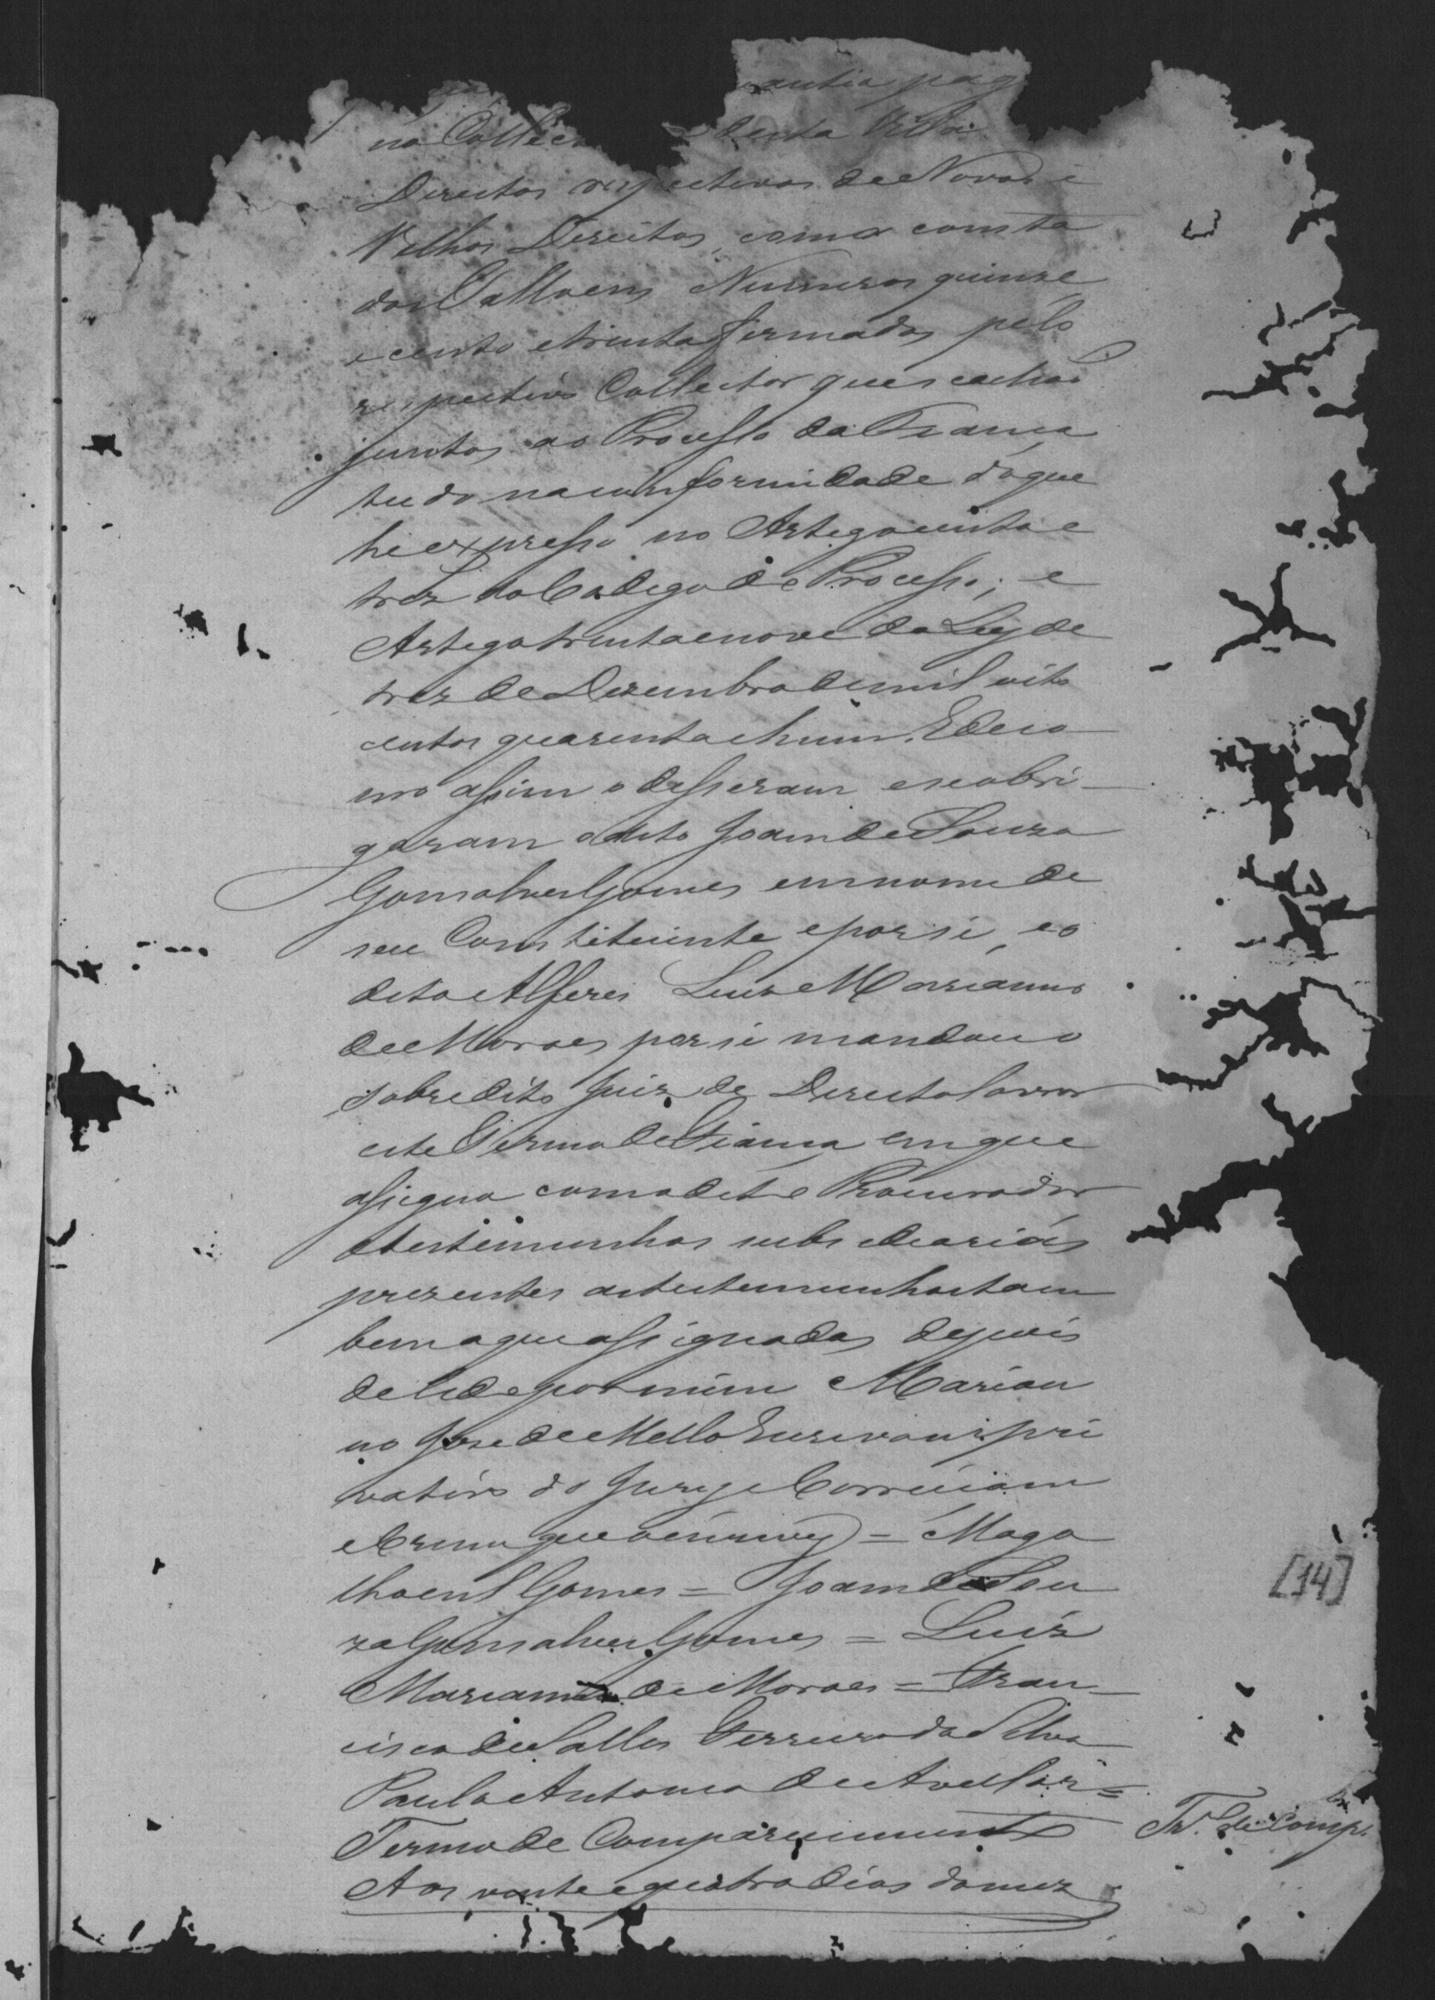 antia pag
na Collec desta Villa
Direitos respectivos de Novos e
Velhos Direitos, como consta
dos Talloens Numeros quinse
e cento e trinta firmados pelo
respectivo Collector que se achao
juntos ao Processo da Fiança
tudo na conformidade do que
he expresso no Artigo cento e
tres do Codigo de Processo; e
Artigo trinta e nove da Ley de
tres de Dezembro de mil oito
centos quarenta e hum. E de co-
mo assim o disseram e se obri-
garam o dito Joam de Souza
Gonsalves Gomes em nome de
seu Constituinte e por si, e o
dito Alferes Luis Marianno
de Moraes por si mandou o
sobredito Juiz de Direito lavrar
este Termo de Fiança em que
assigna com o dito Procurador
e testemunhas subsidiarias
prezentes as testemunhas tam
bem aqui assignadas depois
de lido por mim Marian
no Jose de Mello Escrivam pri
vativo do Jury e Correiçam
e Crime que o escrevy = Maga
lhaens Gomes = Joam de Sou
za Gonsalves Gomes = Luis
Marianno de Moraes = Fran-
cisco de Salles Ferreira da Silva
Paulo Antonio de Avellar =
Termo de Comparecimento
Aos vinte e quatro dias do mez
[14]
Tr.º de Comp.